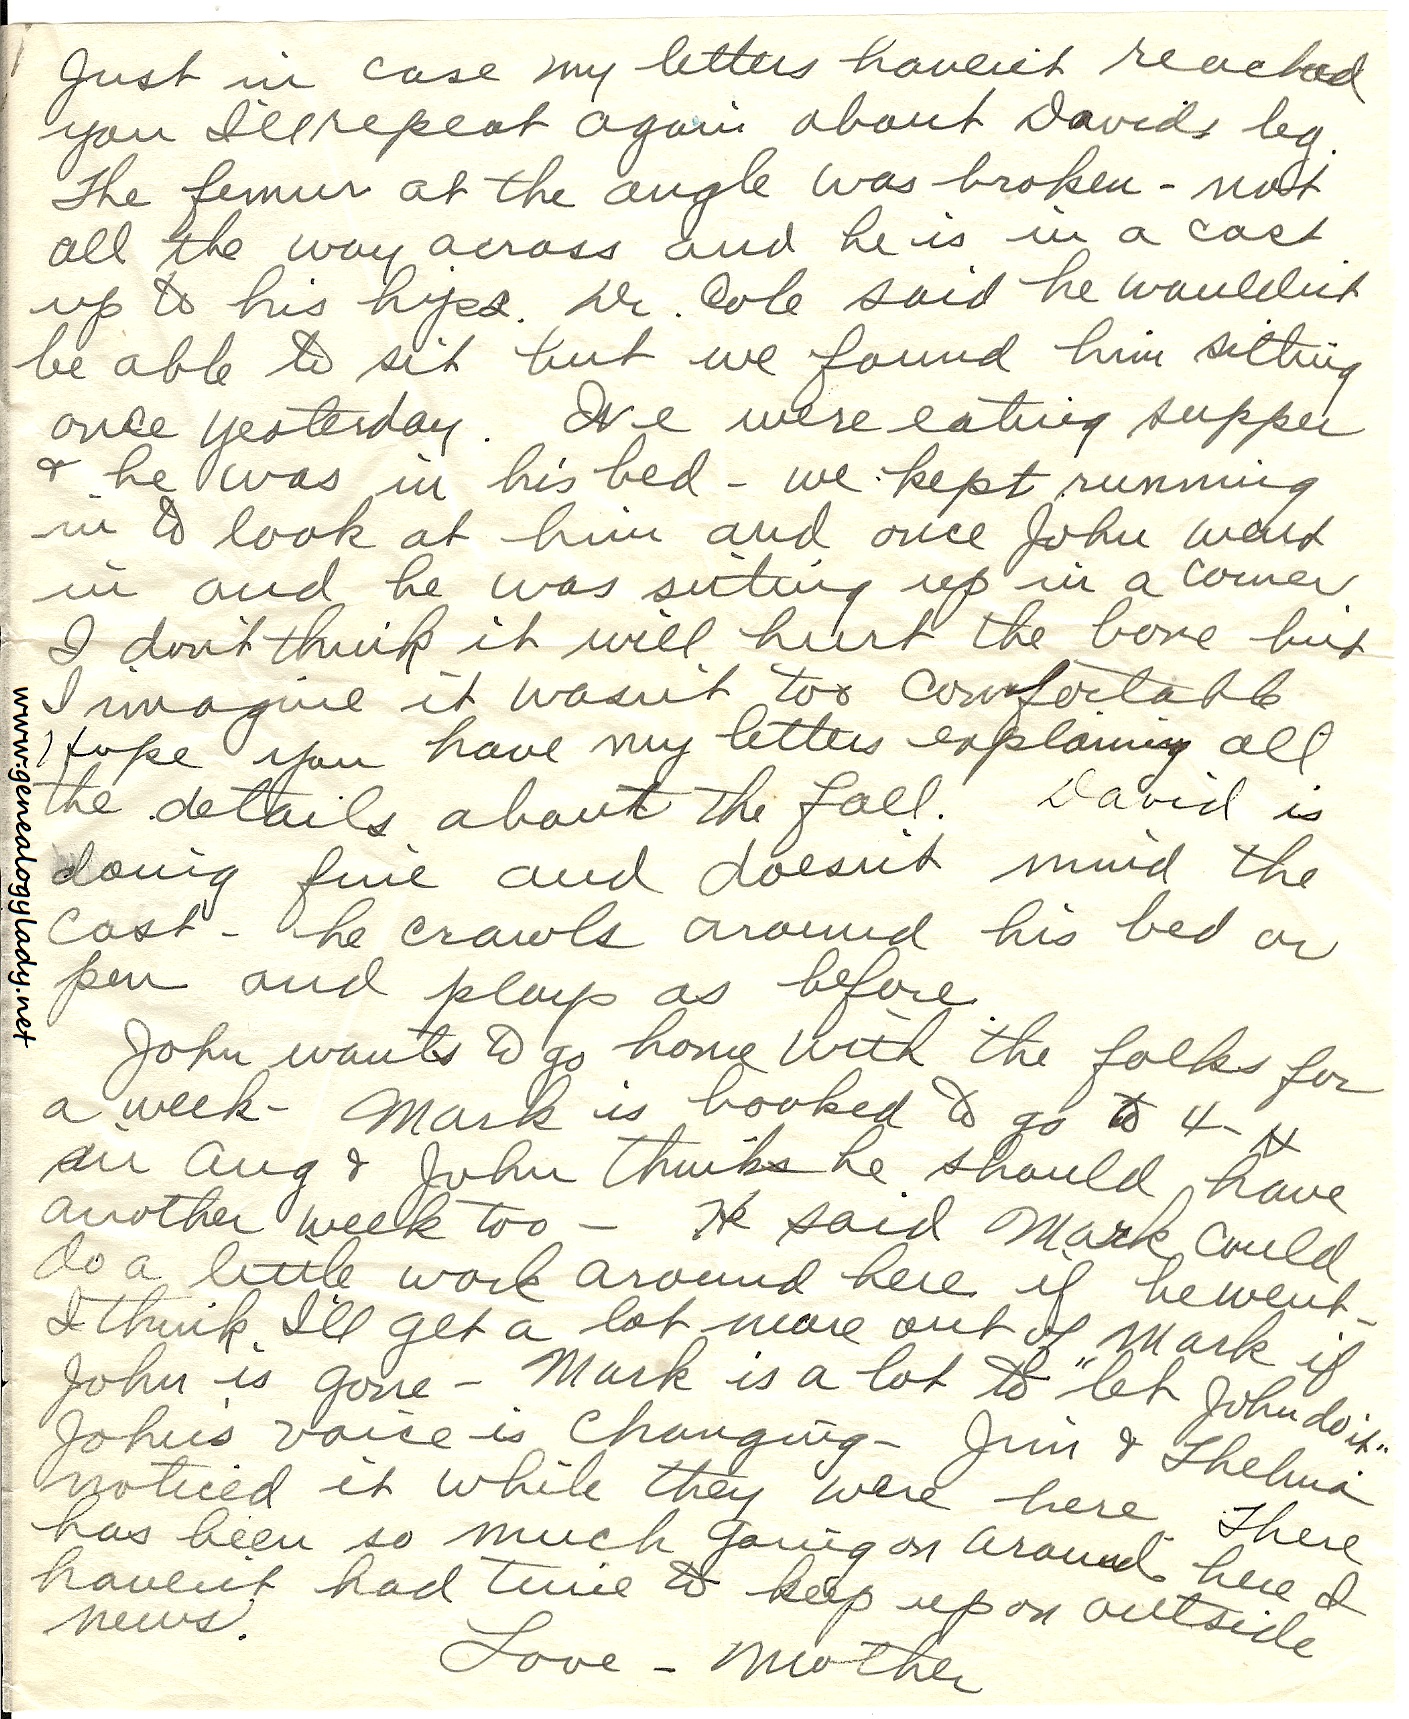 Just in case my letters haven't reached
you I'll repeat again about Davids leg.
The femur at the angle was broken - not
all the way across and he is in a cast
up to his hips. Dr. Cole said he wouldn't
be able to sit but we found him sitting
once yesterday. We were eating supper
& he was in his bed - we kept running
in to look at him and once John went
in and he was sitting up in a corner
I don't think it will hurt the bone but
I imagine it wasn't too comfortable
Hope you have my letters explaining all
the details about the fall. David is
doing fine and doesn't mind the
cast - he crawls around his bed or
pen and plays as before.
John wants to go home with the folks for
a week - Mark is booked to go to 4-H
in Aug & John thinks he should have
another week too - He said Mark could
do a little work around here if he went -
I think I'll get a lot more out of Mark if
John is gone - Mark is a lot to "let John do it"
John's voice is changing - Jim & Thelma
noticed it while they were here. There
has been so much going on around here I
haven't had time to keep up on outside
news.
Love - Mother
www.genealogylady.net